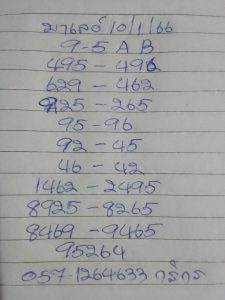 มาเลย์ 10/1/66
9-5 A B
495 - 496
629 - 462
925 - 265
95 - 96
92 - 45
46 - 42
1462 - 2495
8925 - 8265
8469 - 9465
95264
057-1264633 กสิกร